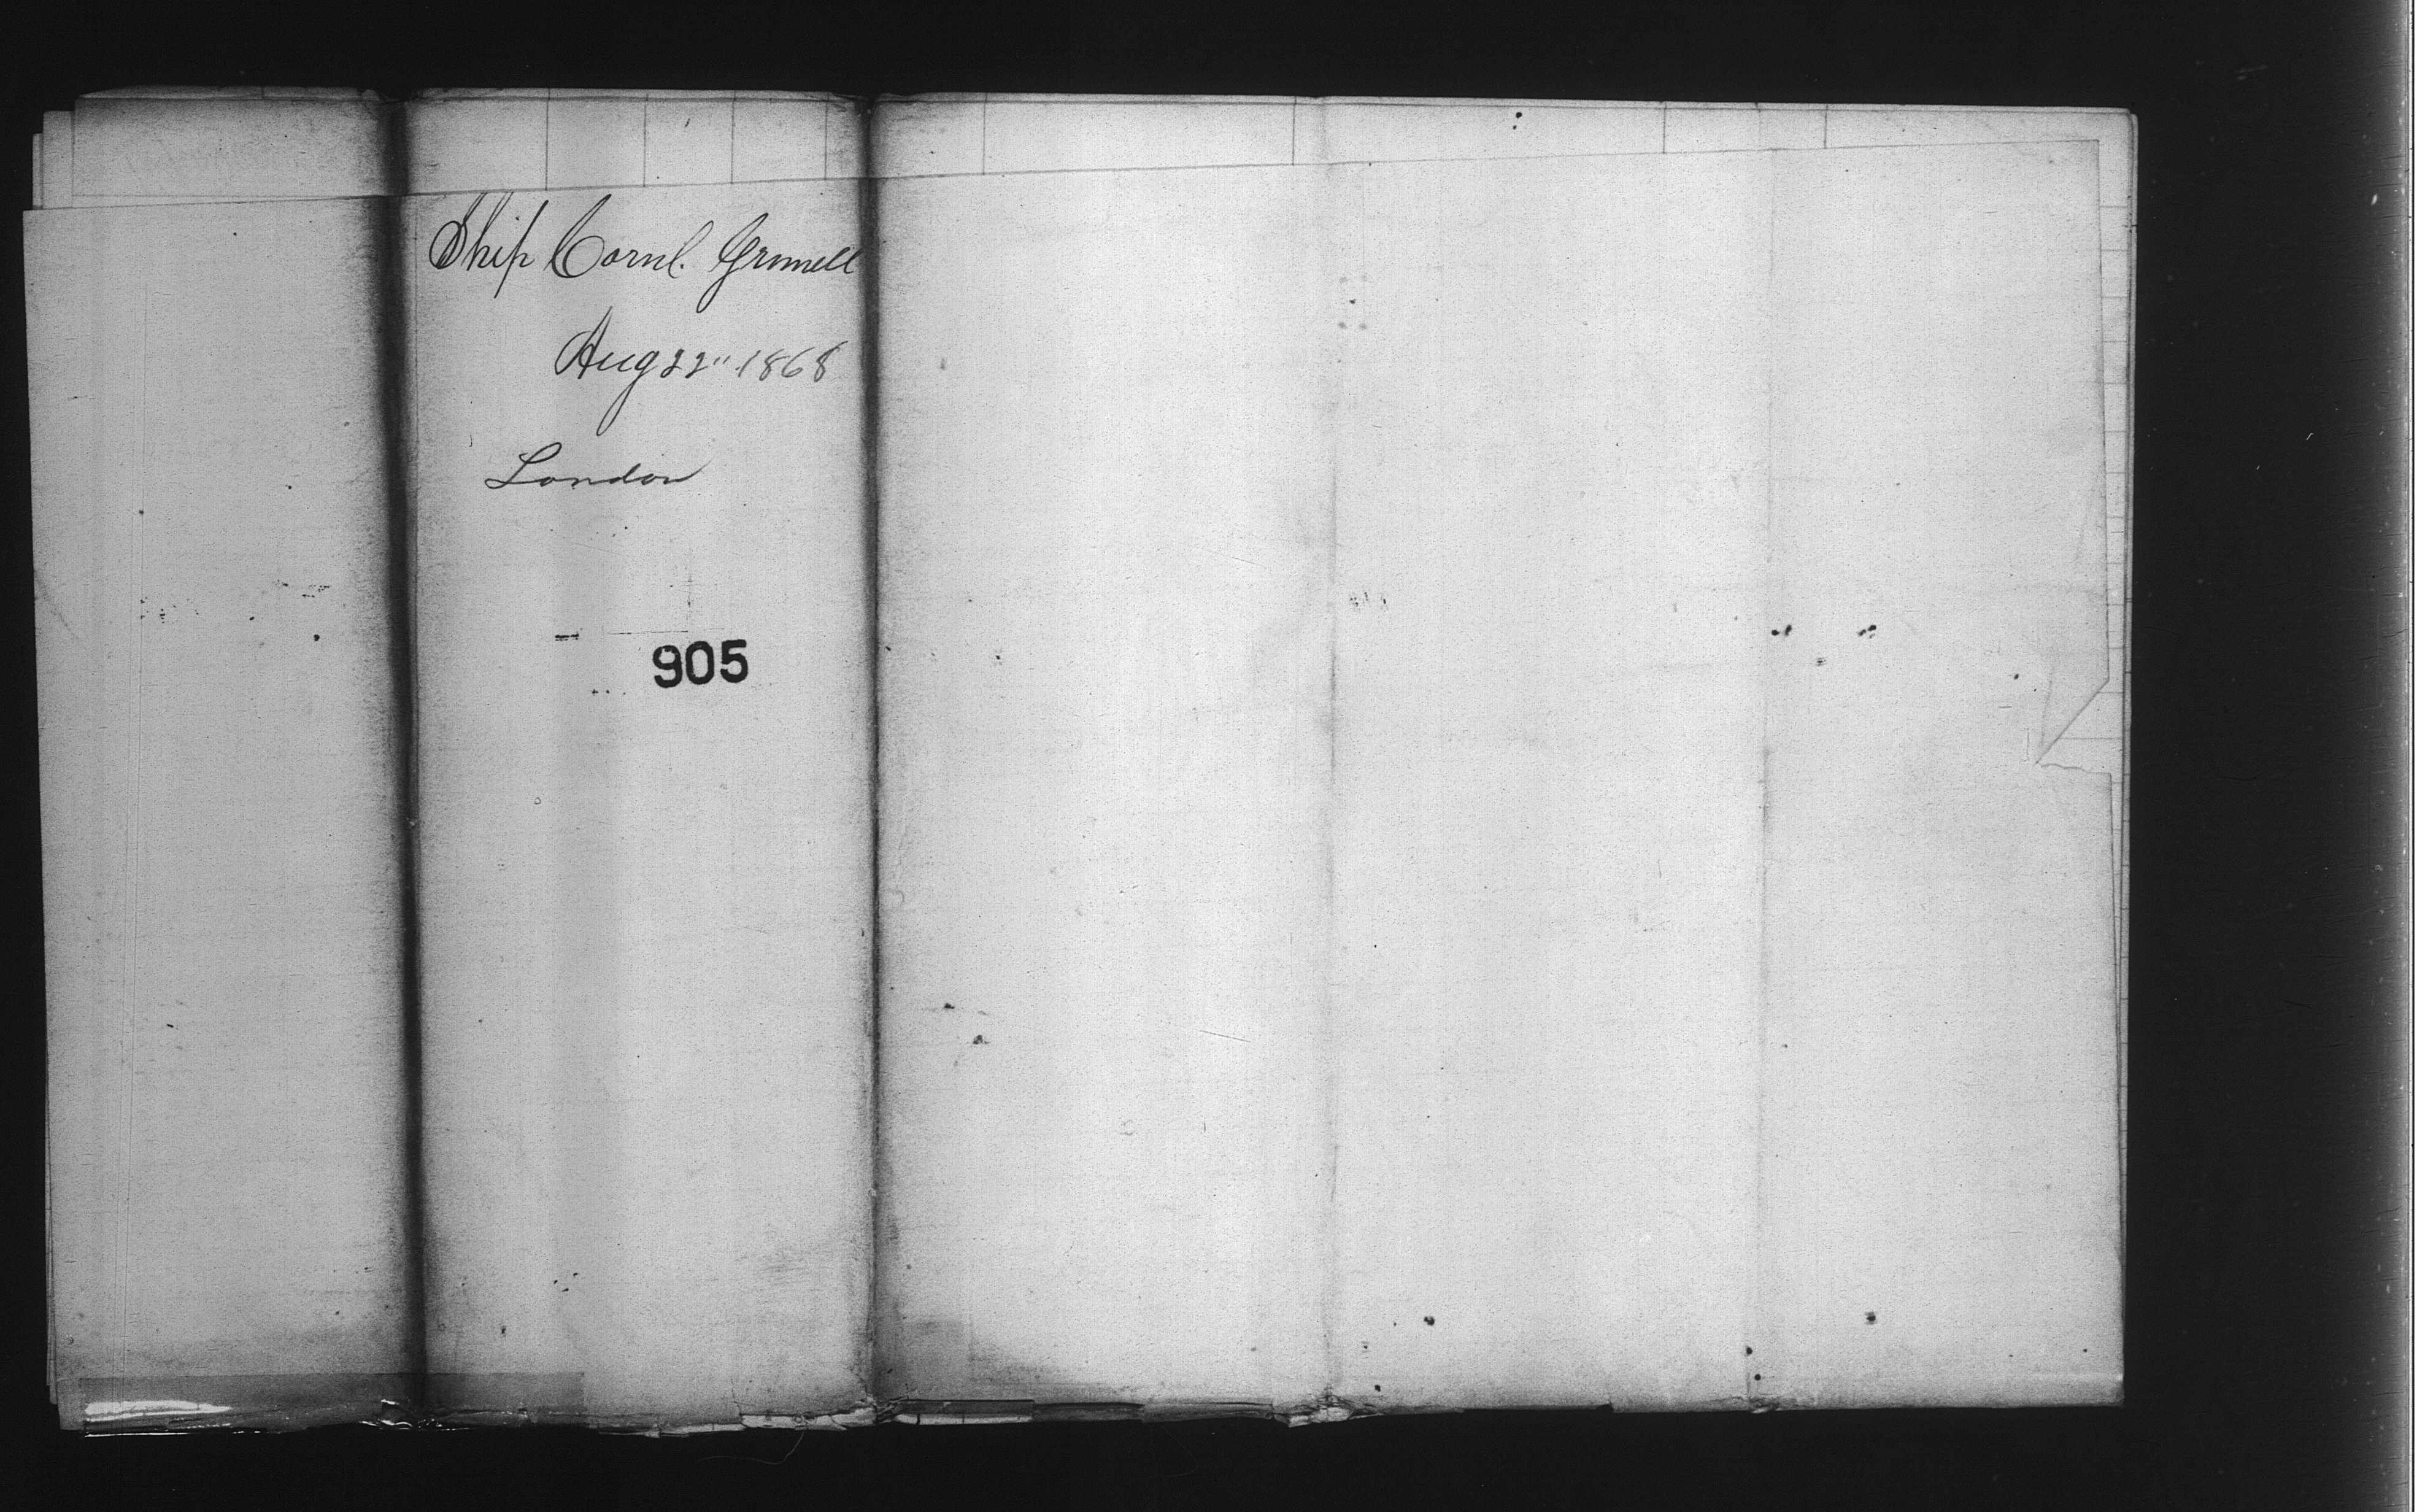 Ship Cornl. Grinnell
Aug 22" 1868
London
905